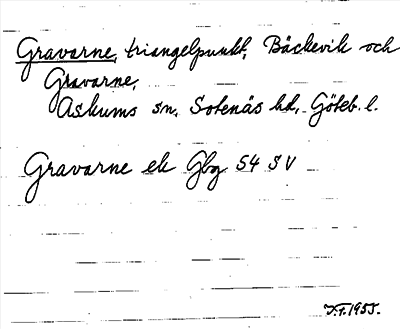 Gravarne, triangelpunkt, Bäckevik och
Gravarne,
Askums sn, Sotenäs hd, Göteb. l.
Gravarne ek Gbg 54 SV
1955.